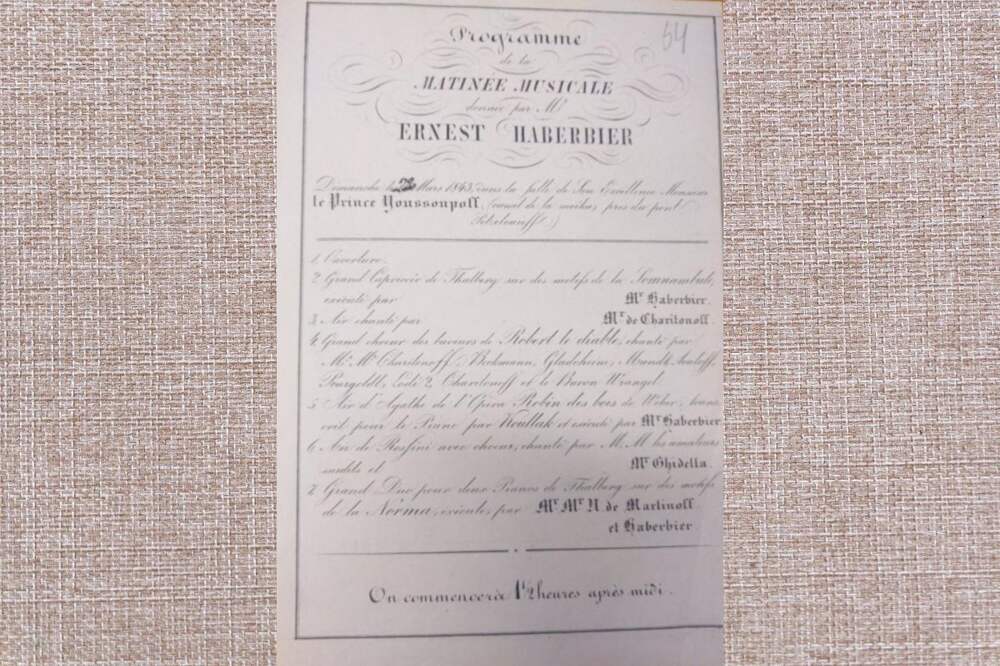 54
Programme
de la
MATINÉE MUSICALE
donnée par Mr
ERNEST HABERBIER
Dimanche le Mars 1843, dans la salle de Son Excellence Monsieur
le Prince Youssoupoff, (canal de la moika, près du pont
)
1. Ouverture.
2. Grand Capriccio de Thalberg sur des motifs de la Somnambule,
exécuté par Mr Haberbier.
3. Air chanté par Mr de Charitonoff.
4. Grand choeur des buveurs de Robert le diable, chanté par
Mr Mr Charitonoff, Beckmann, Gladcheim, Mundt,
Pourgoldt, Lodi 2, Charitonoff et le Baron Wrangel.
5. Air d'Agathe de l'Opéra Robin des bois de Weber, trans
crit pour le Piano par Koullak et exécuté par Mr Haberbier
6. Air de Rossini avec choeur, chanté par M.M. les amateurs
susdits et Mr Ghidella.
7. Grand Duo pour deux Pianos de Thalberg sur des motifs
de la Norma, exécutés par Mr Mr N. de Martinoff
et Haberbier.
On commencera à 2 heures après midi.